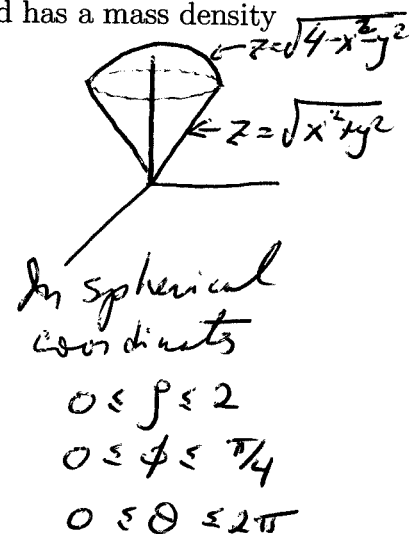 d has a mass density
z=√4-x²-y²
z=√x²+y²
In spherical
coordinats
0 ≤ ρ ≤ 2
0 ≤ ϕ ≤ π/4
0 ≤ θ ≤ 2π